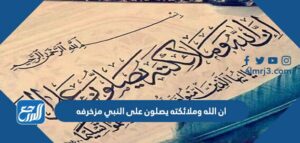 بسم الله الرحمن الرحيم
ان الله وملائكته يصلون على
almrj3.com
ان الله وملائكته يصلون على النبي مزخرفه
المرجع